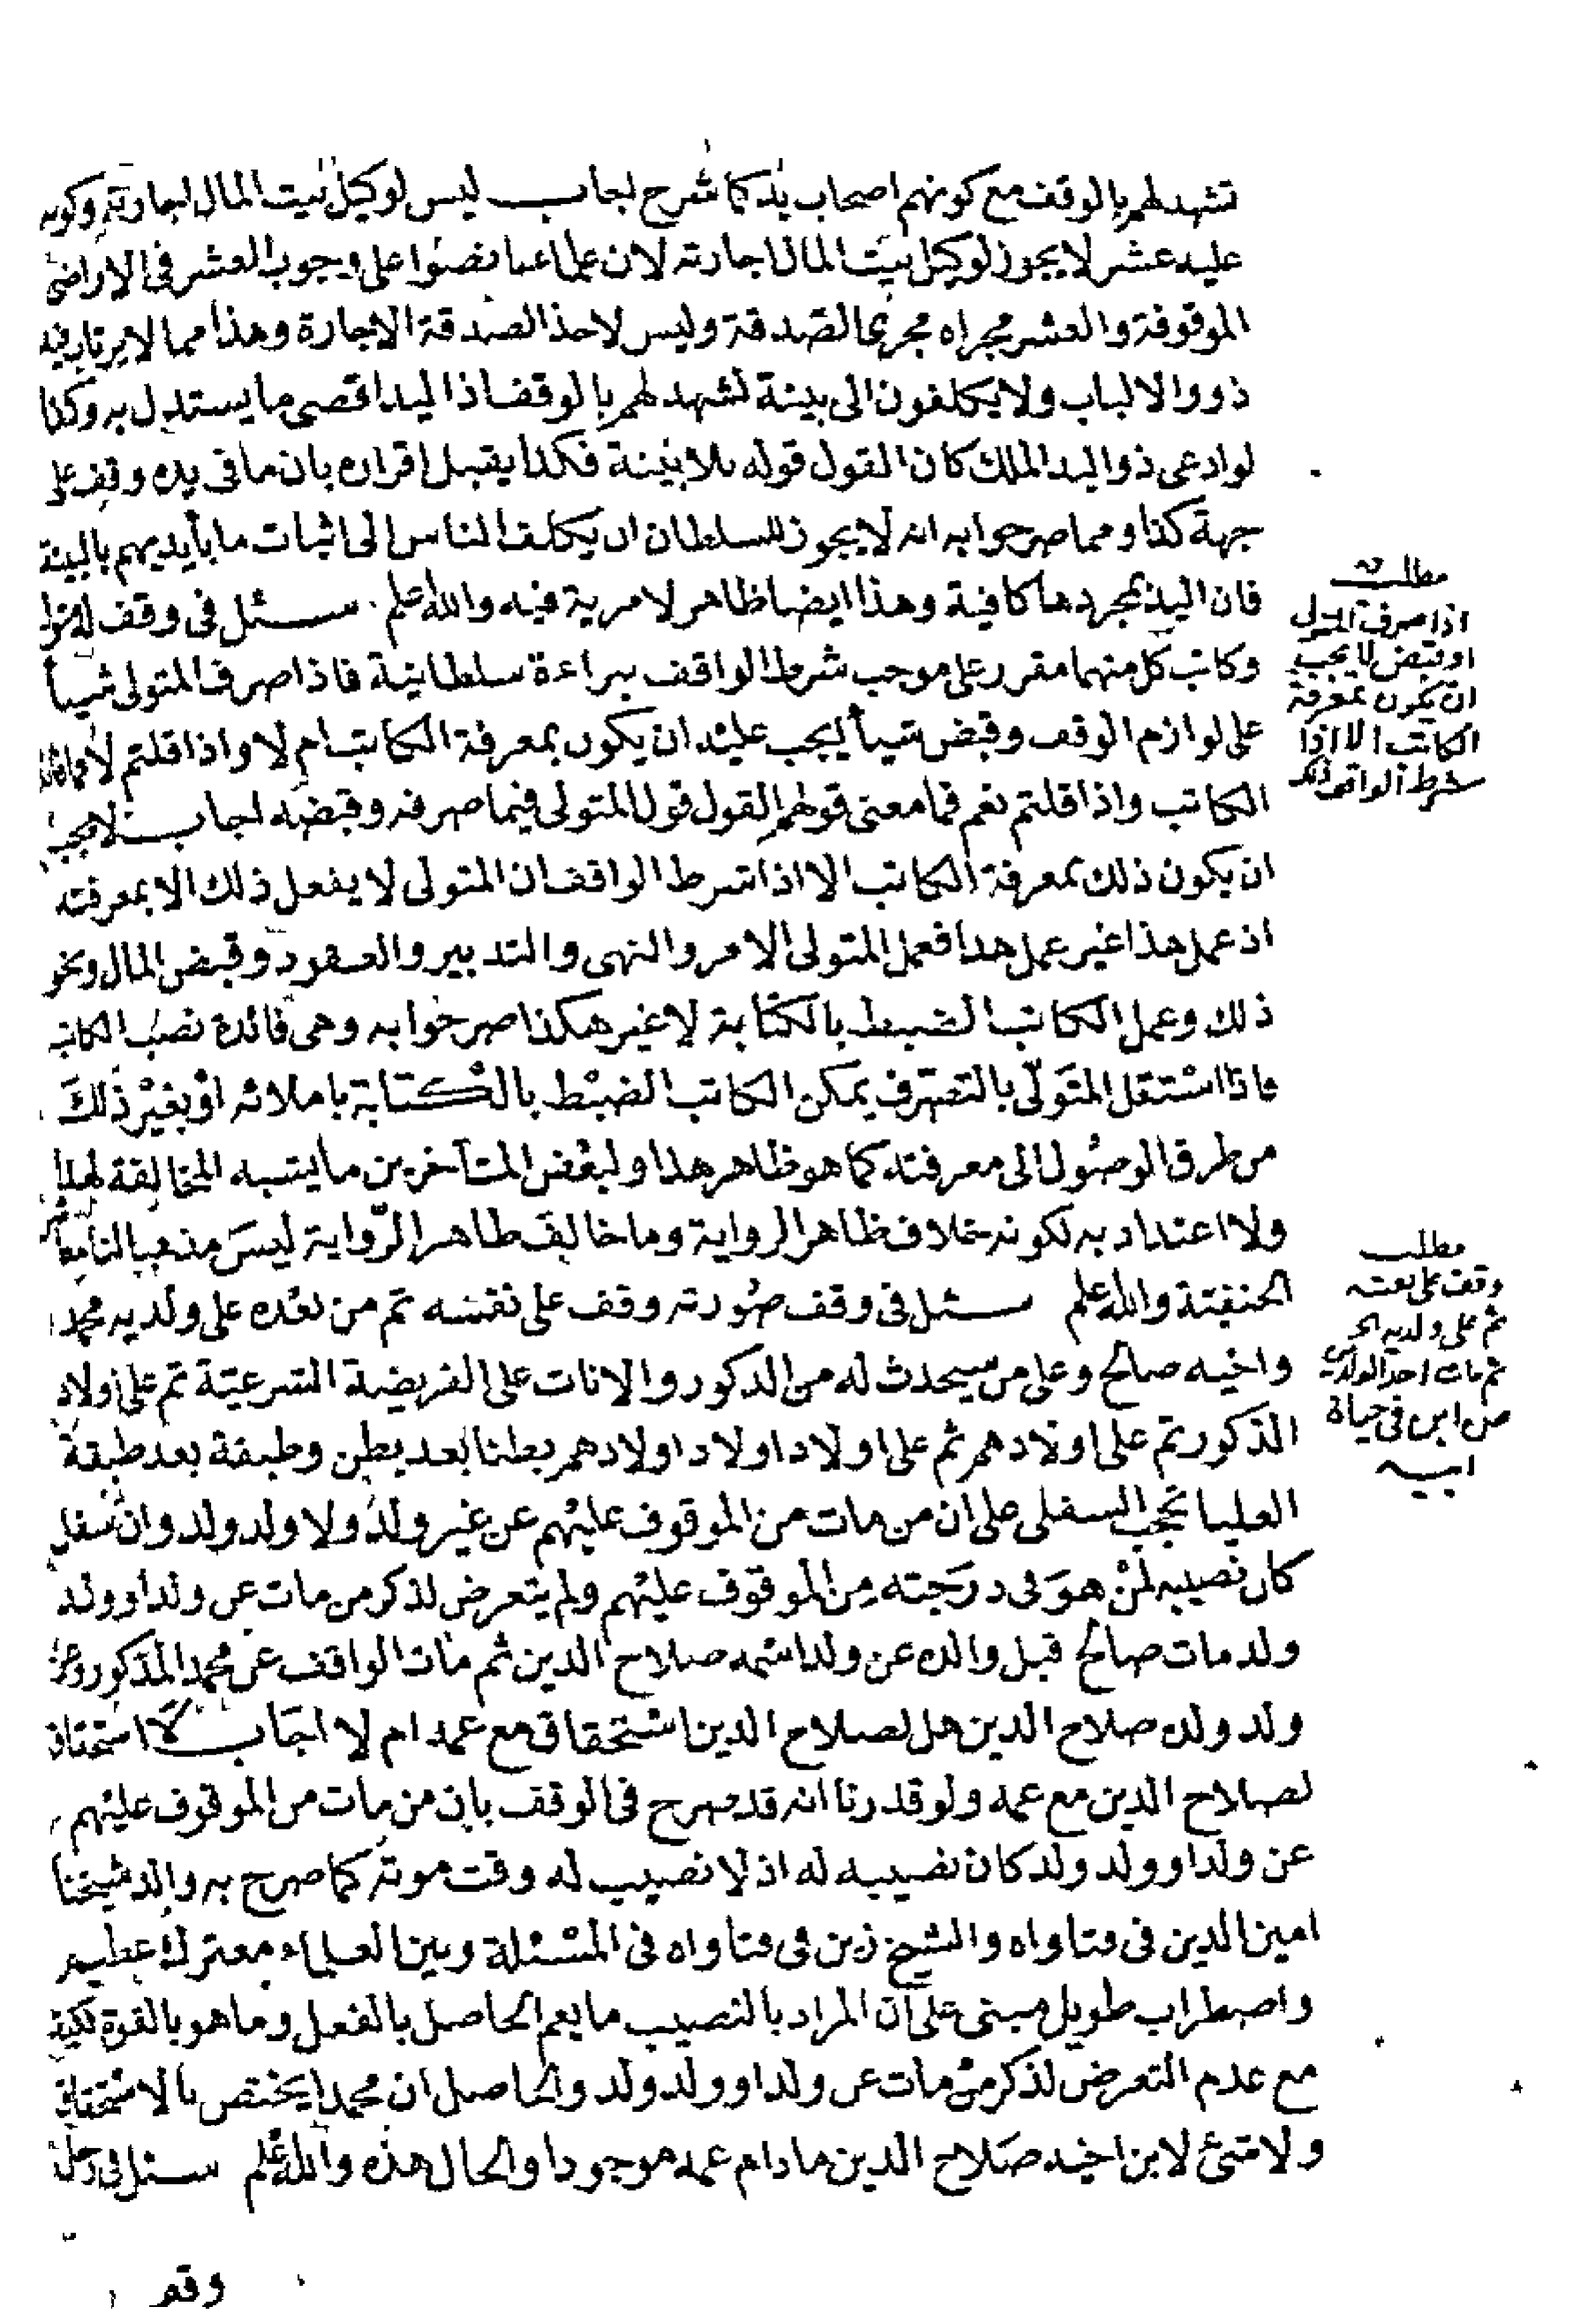 تشهد لهم بالوقف مع كونهم اصحاب يد كما شرح اجاب ليس لوكيل بيت المال ايجارته وكونه
عليه عشر لا يجوز لوكيل بيت المال اجارته لان علماءنا نصوا على وجوب العشر فى الاراضى
الموقوفة والعشر مجراه مجرى الصدقة وليس لاخذ الصدقة الاجارة وهذا مما لا يرتاب فيه
ذووا الالباب ولا يكلفون الى بينة تشهد لهم بالوقف اذ اليد اقصى ما يستدل به وكذا
لو ادعى ذو اليد الملك كان القول قوله بلا بينة فكذا يقبل اقراره بان ما فى يده وقف على
جهة كذا ومما صرحوا به انه لا يجوز للسلطان ان يكلف الناس الى اثبات ما بأيديهم بالبينة
فان اليد بمجردها كافية وهذا ايضا ظاهر لا مرية فيه والله اعلم سئل فى وقف له
وكاتب كل منهما مقرر على موجب شرط الواقف ببراءة سلطانية فاذا صرف المتولى شيأ
على لوازم الوقف وقبض شيأ ايجب عليه ان يكون بمعرفة الكاتب ام لا واذا قلتم لا فما
الكاتب واذا قلتم نعم فما معنى قولهم القول قول المتولى فيما صرفه وقبضه اجاب لا يجب
ان يكون ذلك بمعرفة الكاتب الا اذا شرط الواقف ان المتولى لا يفعل ذلك الا بمعرفته
اذ عمل هذا غير عمل هذا فعمل المتولى الامر والنهى والتدبير والعقود وقبض المال ونحو
ذلك وعمل الكاتب الضبط بالكتابة لا غير هكذا صرحوا به وهى فائدة نصب الكاتب
فاذا استقل المتولى بالتصرف يمكن الكاتب الضبط بالكتابة باملائه او بغير ذلك
من طرق الوصول الى معرفته كما هو ظاهر هذا ولبعض المتأخرين ما يشبه المخالفة لهذا
ولا اعتداد به لكونه خلاف ظاهر الرواية وما خالف ظاهر الرواية ليس مذهبا لنا معاشر
الحنفية والله اعلم سئل فى وقف صورته وقف على نفسه ثم من بعده على ولديه محمد
واخيه صالح وعلى من سيحدث له من الذكور والاناث على الفريضة الشرعية ثم على اولاد
الذكور ثم على اولادهم ثم على اولاد اولاد اولادهم بطنا بعد بطن وطبقة بعد طبقة
العليا تحجب السفلى على ان من مات من الموقوف عليهم عن غير ولد ولا ولد ولد وان سفل
كان نصيبه لمن هو فى درجته من الموقوف عليهم ولم يتعرض لذكر من مات عن ولد او ولد
ولد مات صالح قبل والده عن ولد اسمه صلاح الدين ثم مات الواقف عن محمد المذكور وعن
ولد ولده صلاح الدين هل لصلاح الدين استحقاق مع عمه ام لا اجاب لا استحقاق
لصلاح الدين مع عمه ولو قدرنا انه قد صرح فى الوقف بان من مات من الموقوف عليهم
عن ولد او ولد ولد كان نصيبه له اذ لا نصيب له وقت موته كما صرح به والد شيخنا
امين الدين فى فتاواه والشيخ زين فى فتاواه فى المسئلة وبين العلماء معترك عظيم
واضطراب طويل مبنى على ان المراد بالنصيب ما يعم الحاصل بالفعل وما هو بالقوة فكيف
مع عدم التعرض لذكر من مات عن ولد او ولد ولد والحاصل ان محمدا يختص بالاستحقاق
ولا شئ لابن اخيه صلاح الدين ما دام عمه موجودا والحال هذه والله اعلم سئل فى رجل
وقف
مطلب
اذا صرف المتولى
او قبض لا يجب
ان يكون بمعرفة
الكاتب الا اذا
شرط الواقف ذلك
مطلب
وقف على نفسه
ثم على ولديه الخ
ثم مات احد الولدين
عن ابن فى حياة
ابيه